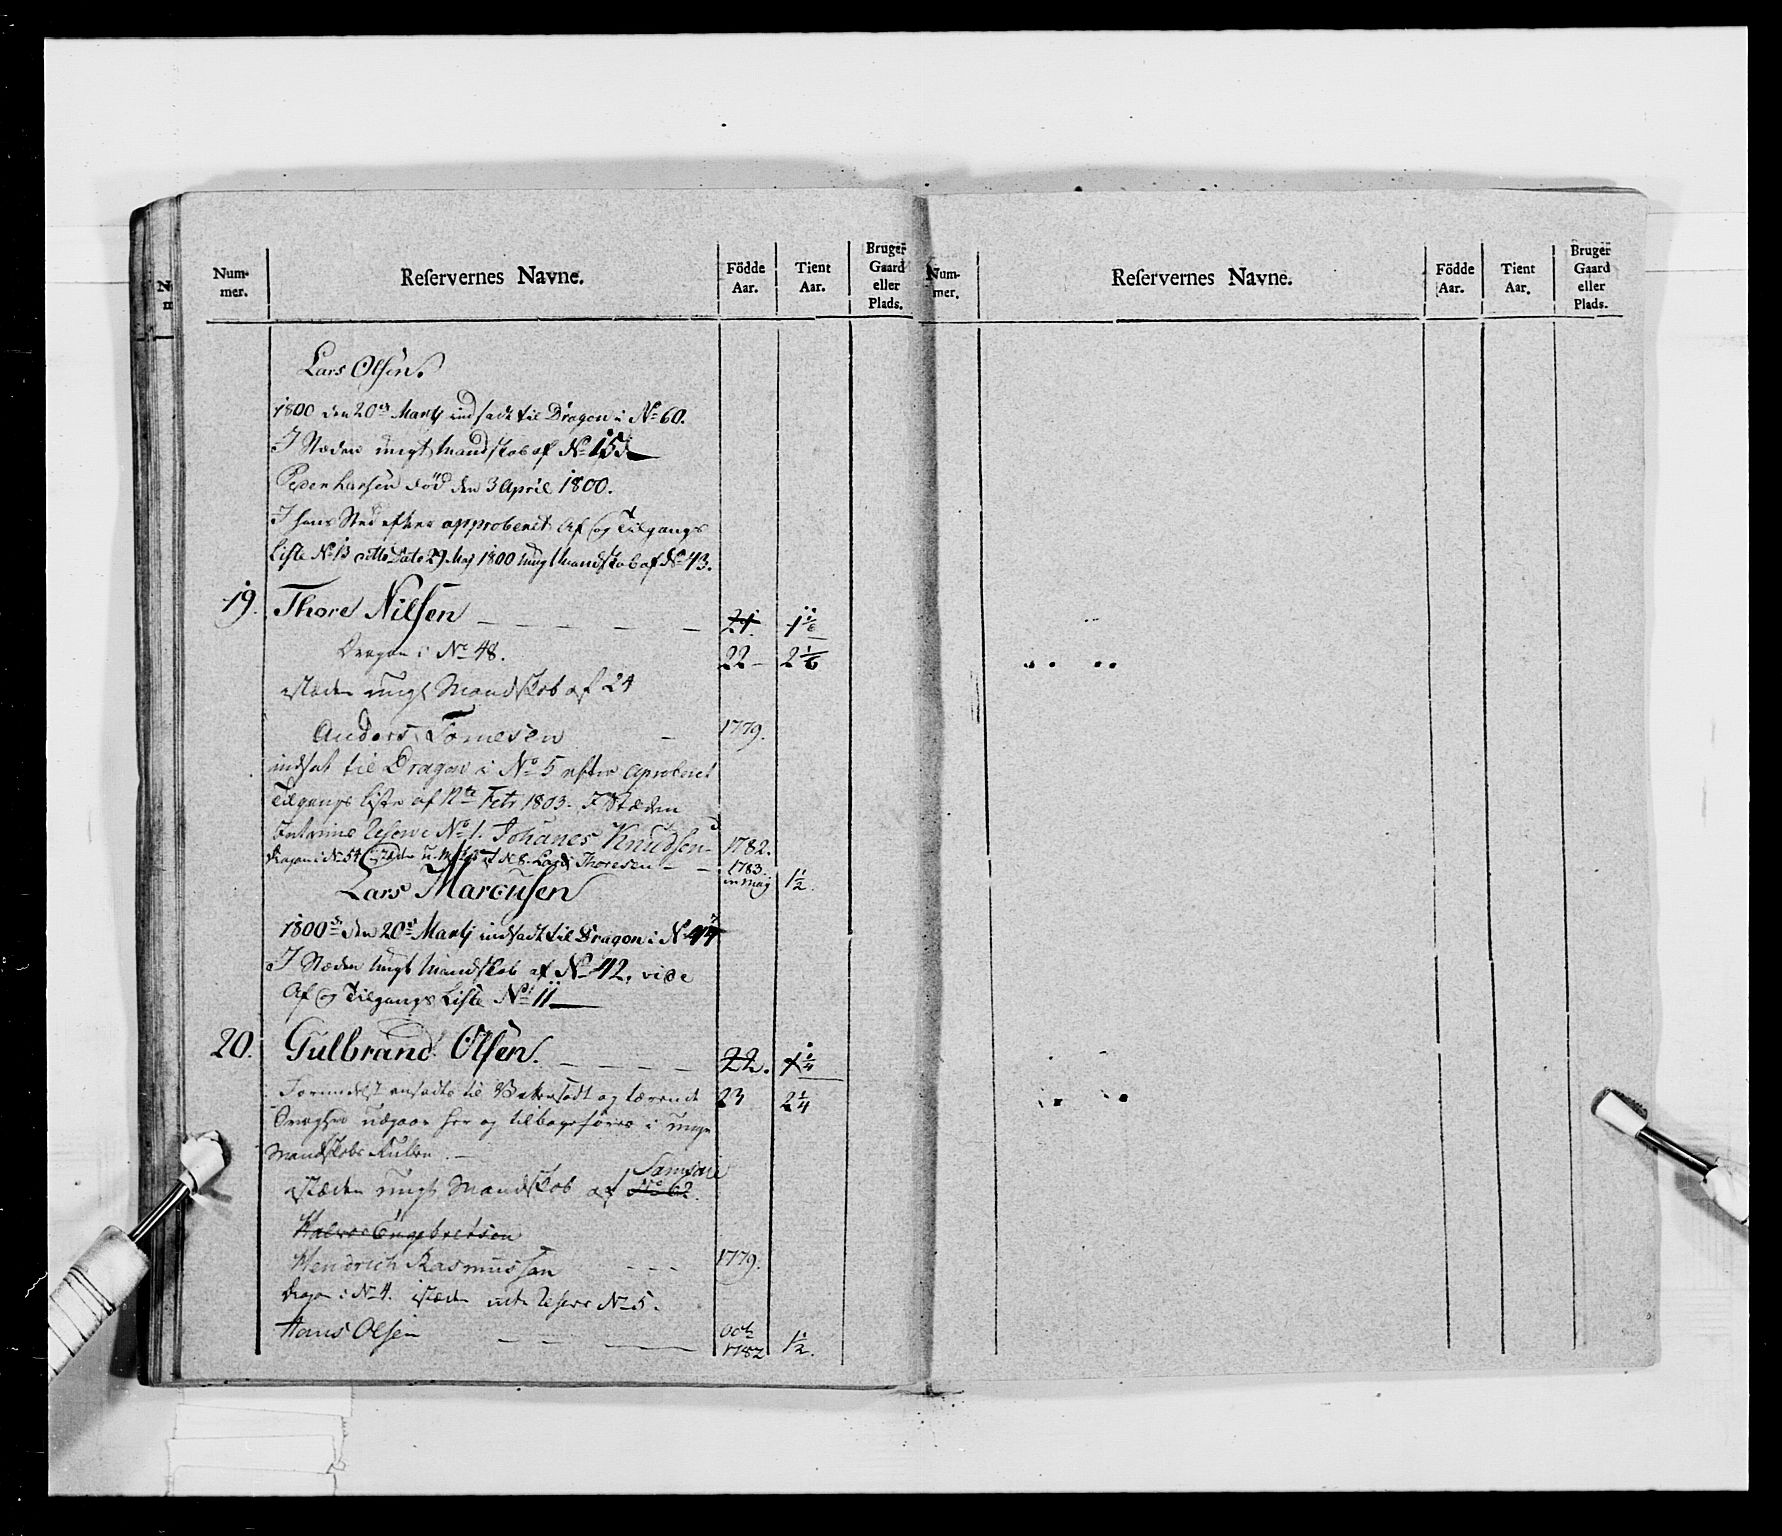 Num-
mer.
Reservernes Navne.
Födde
Aar.
Tient
Aar.
Bruger
Gaard
eller
Plads.
Lars Olsen.
1800 den 20de Martj indsadt til Dragon i No 60.
I Stæden ungt Mandskab af No 15
Peder Larsen død den 3 April 1800.
I hans Sted efter approberet Af og Tilgangs
Liste No 13 Dato 29 Maj 1800 ungt Mandskab af No 43.
19. Thore Nilsen 21. 1
Dragon i No 48. 22 2 1/6
istæden ungt Mandskab af 24
Anders Tomesen 1779.
indsat til Dragon i No 5 efter aproberet
Tilgangs Liste af Febr 1803. I Stæden
Reserve No 1. Johanes Knudsen 1782.
Dragon i No 54 No 8. Lars Thoresen 1783
in Maj 1 1/2.
Lars Marcusen
1800 den 20de Martj indsadt til Dragon i No
I Stæden ungt Mandskab af No 42, vide
Af og Tilgangs Liste No 11
20. Gulbrand Olsen. 22. 1 1/4
Formedelst ansadte til og tærende 23 2 1/4
Svaghed udgaar her og tilbageføres i unge
Mandskabs Rullen.
istæden ungt Mandskab af No 62.
Halvor Engebretsen
Hendrich Rasmussen 1779.
Dragon i No 4. istæden Reserve No 5.
Hans Olsen Octb
1782 1 1/2.
Num-
mer.
Reservernes Navne.
Födde
Aar.
Tient
Aar.
Bruger
Gaard
eller
Plads.